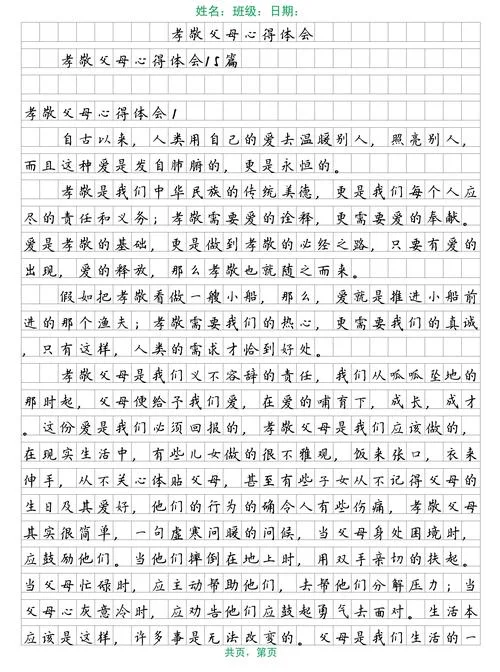 姓名：班级：日期：
孝敬父母心得体会
孝敬父母心得体会15篇
孝敬父母心得体会1
自古以来，人类用自己的爱去温暖别人，照亮别人，
而且这种爱是发自肺腑的，更是永恒的。
孝敬是我们中华民族的传统美德，更是我们每个人应
尽的责任和义务；孝敬需要爱的诠释，更需要爱的奉献。
爱是孝敬的基础，更是做到孝敬的必经之路，只要有爱的
出现，爱的释放，那么孝敬也就随之而来。
假如把孝敬看做一艘小船，那么，爱就是推进小船前
进的那个渔夫；孝敬需要我们的热心，更需要我们的真诚
，只有这样，人类的需求才恰到好处。
孝敬父母是我们义不容辞的责任，我们从呱呱坠地的
那时起，父母便给予我们爱，在爱的哺育下，成长，成才
。这份爱是我们必须回报的，孝敬父母是我们应该做的，
在现实生活中，有些儿女做的很不雅观，饭来张口，衣来
伸手，从不关心体贴父母，甚至有些子女从不记得父母的
生日及其爱好，他们的行为的确令人有些伤痛，孝敬父母
其实很简单，一句虚寒问暖的问候，当父母身处困境时，
应鼓励他们。当他们摔倒在地上时，用双手亲切的扶起。
当父母忙碌时，应主动帮助他们，去帮他们分解压力；当
父母心灰意冷时，应劝告他们应鼓起勇气去面对。生活本
应该是这样，许多事是无法改变的。父母是我们生活的一
共页，第页